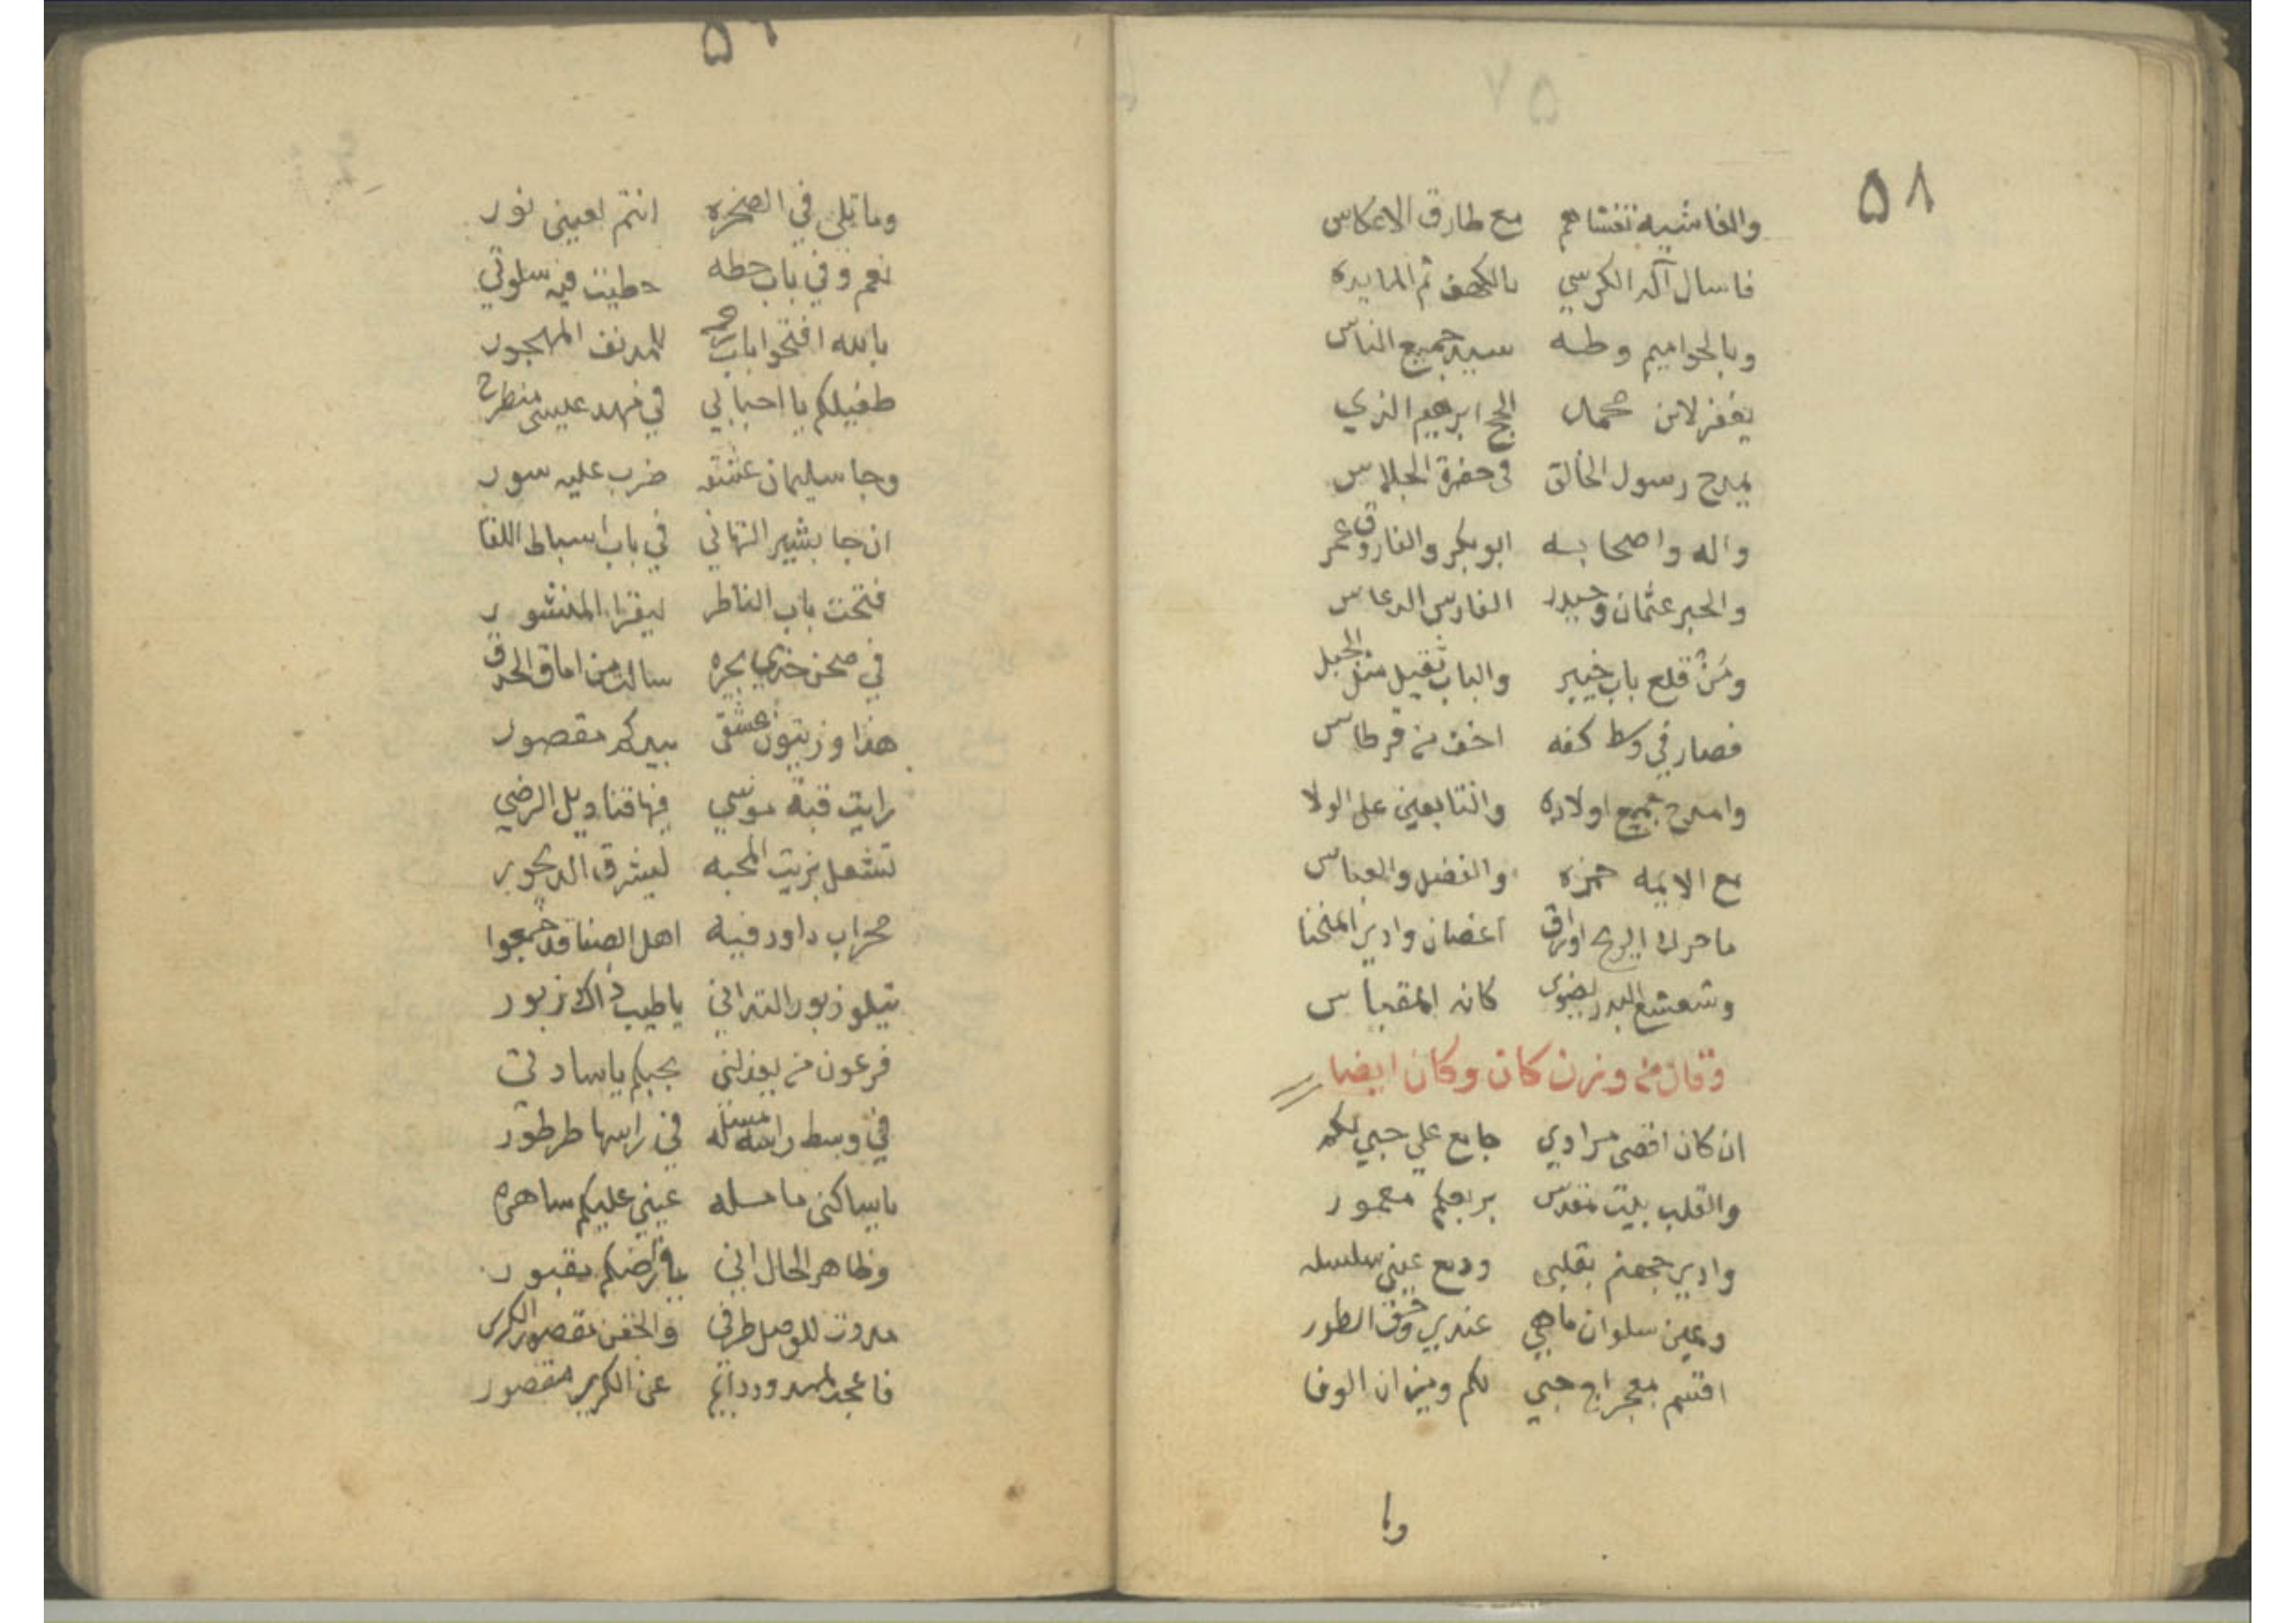 ٥٨
والغاشيه تغشاهم مع طارق الاعكاس
فاسال آله الكرسي بالكهف ثم المايده
وبالحواميم وطه سيد جميع الناس
يغفر لابن محمد الحج ابرهيم الذي
يمدح رسول الخالق في حضرة الجلاس
واله واصحابه ابو بكر والفاروق عمر
والحبر عثمان وحيدر الفارس الدعاس
ومن قلع باب خيبر والباب ثقيل مثل الجبل
فصار في وسط كفه اخف من قرطاس
وامدح جميع اولاده والتابعين على الولا
مع الايمه حمزه والفضل والعباس
ما حرك الريح اوراق اغصان وادي المنحنا
وشعشع البدر بضوى كانه المقباس
وقال من وزن كان وكان ايضا
ان كان اقصى مرادي جامع علي حبي لكم
والقلب بيت مقدس بربعكم معمور
وادي جهنم بقلبي ودمع عيني سلسله
وعين سلوان ماهي عندي وحق الطور
اقسم بمعراج حبي لكم وميزان الوفا
وما
٥٩
وما تلي في الصخره انتم لعيني نور
نعم وفي باب حطه حطيت فيه سلوتي
بالله افتحوا باب رحمه للمدنف المهجور
طفيلكم يا احبابي في مهد عيسى منطرح
وجا سليمان عشقه ضرب عليه سور
ان جا بشير التهاني في باب اسباط اللقا
فتحت باب الناظر ليقرا المنشور
في صحن خدي بحره سالت من اماق الحدق
هذا وزيتون عشقي بيدكم مقصور
رايت قبة موسي فيها قناديل الرضي
تشعل بزيت المحبه ليشرق الديجور
محراب داود فيه اهل الصفا قد جمعوا
تيلو زبور التداني يا طيب ذاك زبور
فرعون من يعذلني بحبكم يا سادتي
في وسط راسه مسله في راسها طرطور
يا ساكنى ماملله عيني عليكم ساهره
وظاهر الحال اني بارضكم مقبور
مدوت للوصل طرفي والجفن مقصور الكرى
فاعجب لممدود دايم عن الكرى مقصور